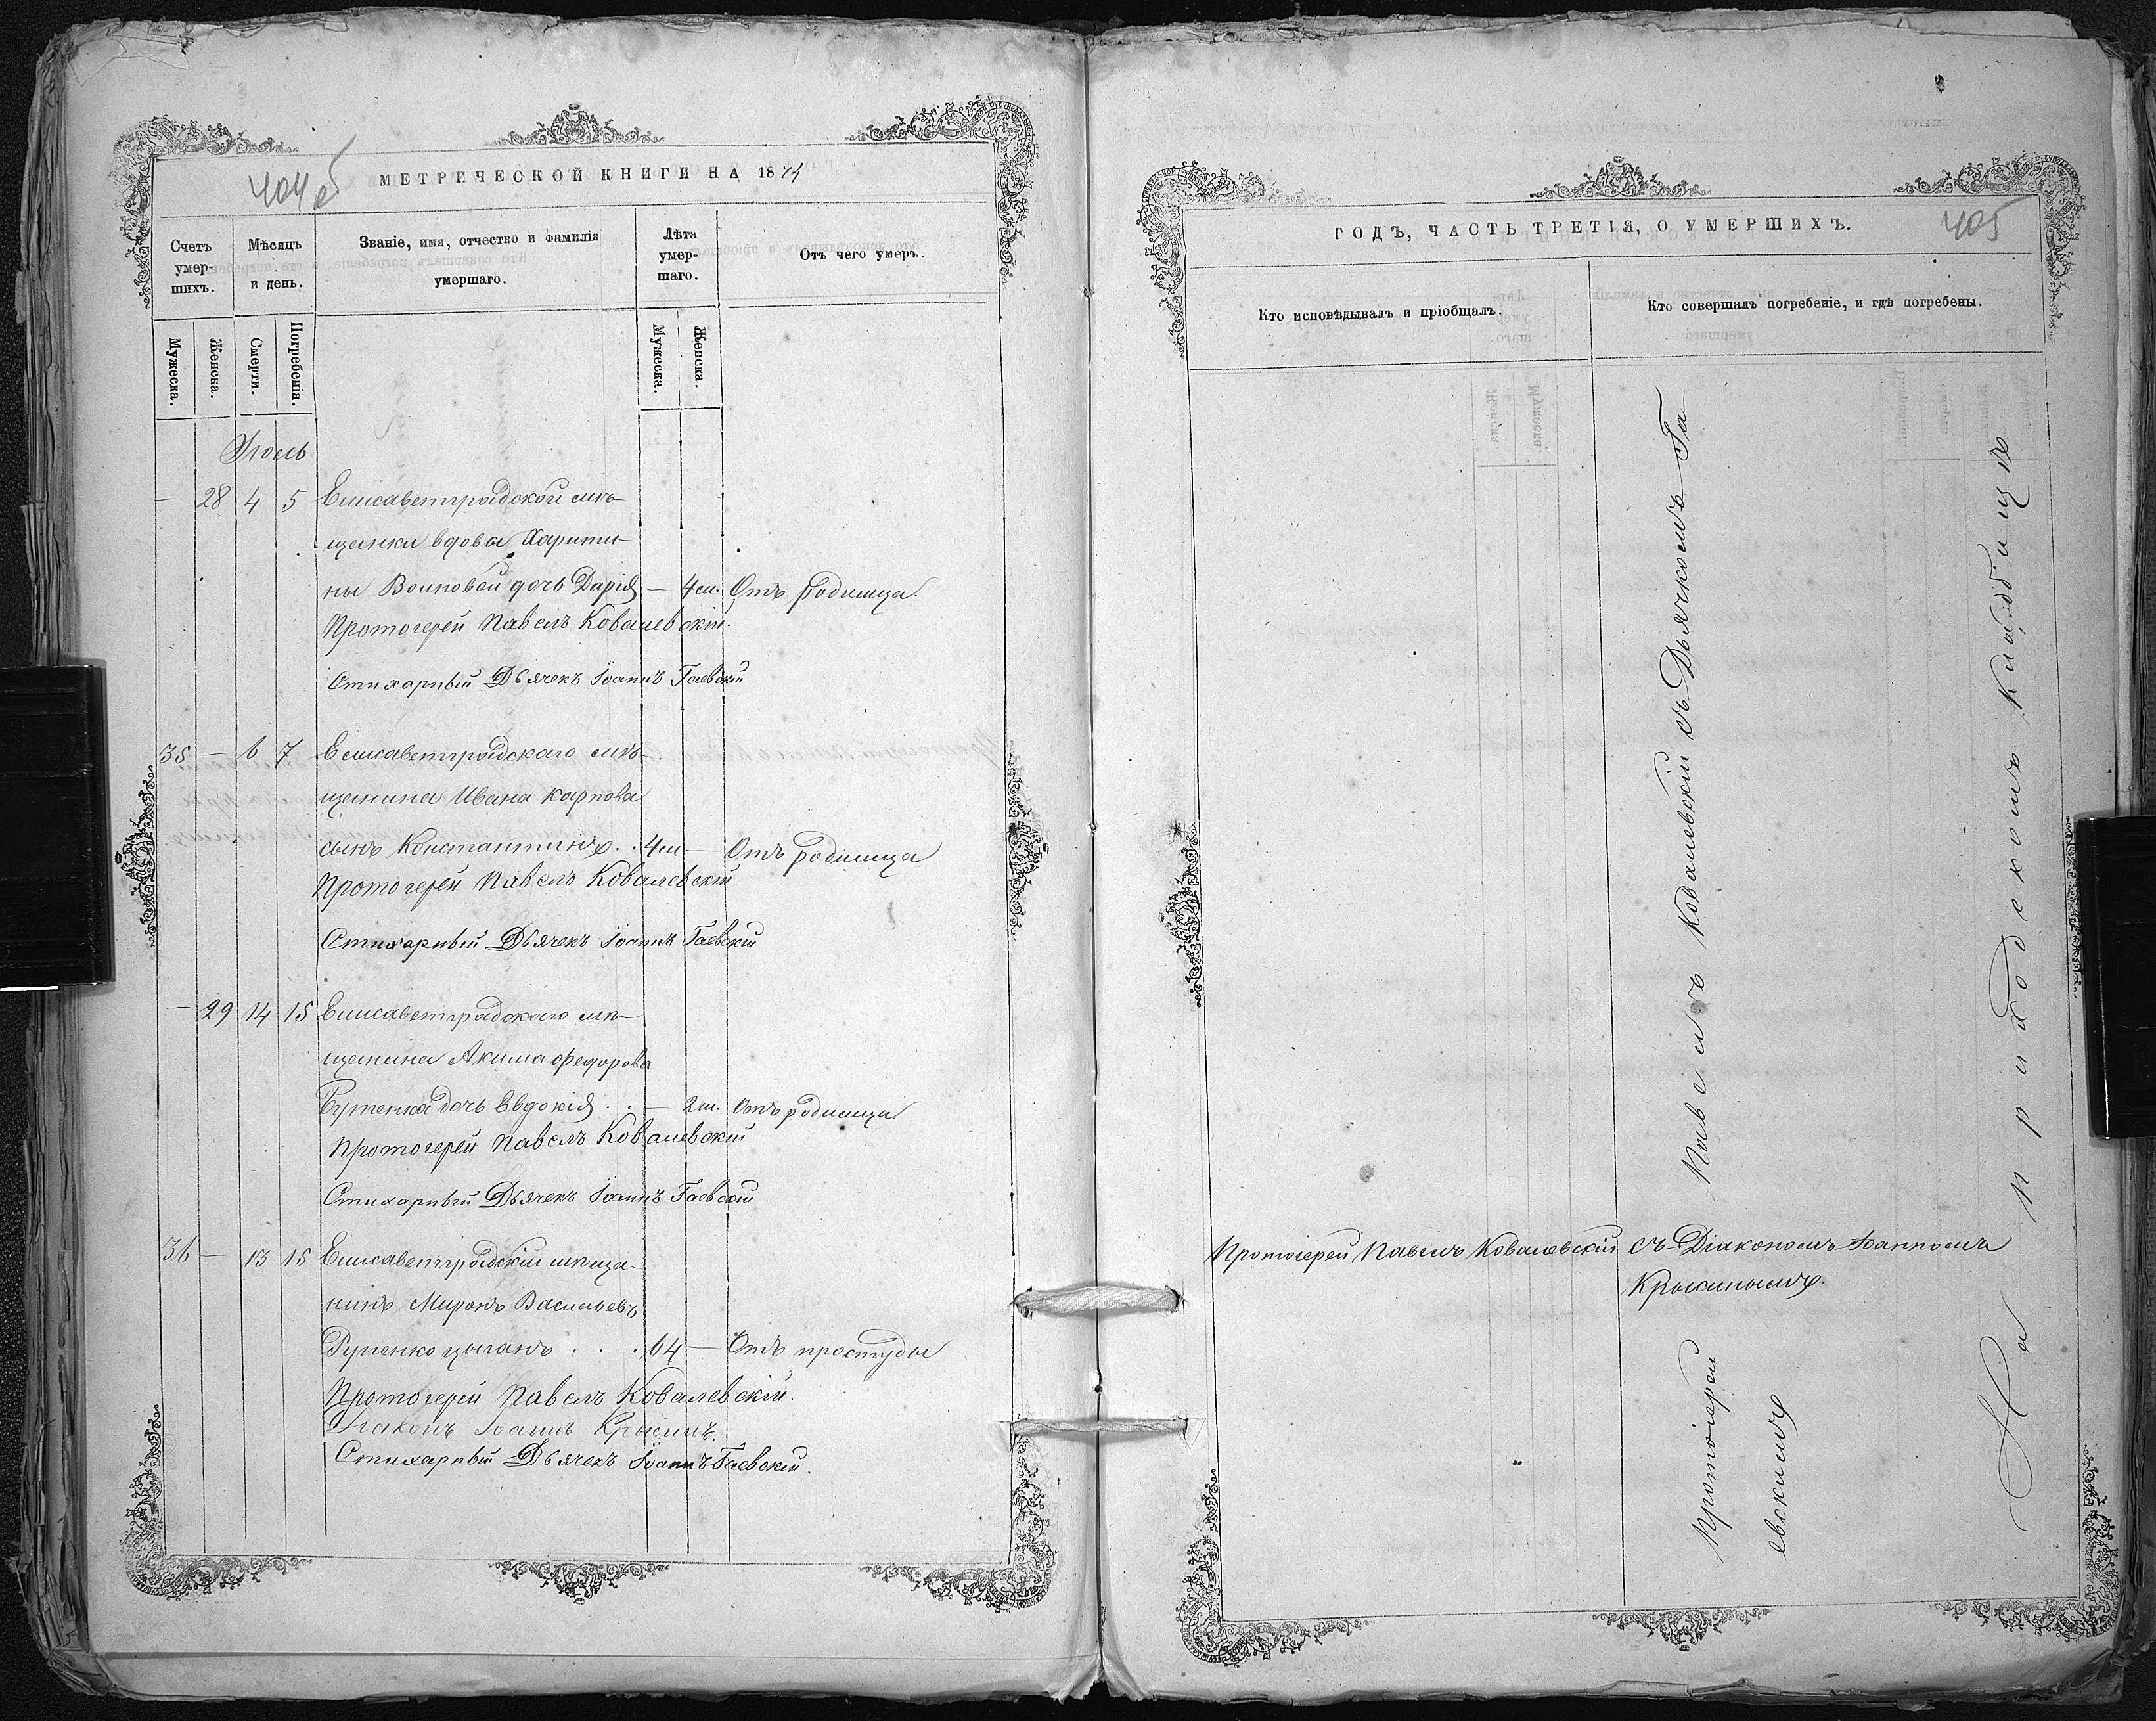 404 об
МЕТРИЧЕСКОЙ КНИГИ НА 1874
Счетъ умер-шихъ.
Мѣсяцъ и день.
Званіе, имя, отчество и фамилія умершаго.
Лѣта умер-шаго.
Отъ чего умеръ.
Мужеска.
Женска.
Смерти.
Погребенія.
Мужеска.
Женска.
Іюль
— 28 4 5 Елисаветградской мѣ-
щанки вдовы Харити-
ны Воиновой дочь Дарія — 4 м. Отъ родимца.
Протоіерей Павелъ Ковалевскій.
Стихарный Дьячекъ Іоаннъ Гаевскій
35 — 6 7 Елисаветградскаго мѣ-
щанина Ивана Карпова
сынъ Константинъ . . 4 м — Отъ родимца
Протоіерей Павелъ Ковалевскій
Стихарный Дьячекъ Іоаннъ Гаевскій
— 29 14 15 Елисаветградскаго мѣ-
щанина Акима Федорова
дочь Евдокія . . — 2 м. Отъ родимца
Протоіерей Павелъ Ковалевскій
Стихарный Дьячекъ Іоаннъ Гаевскій
36 — 13 15 Елисаветградскій мѣща-
нинъ Миронъ Васильевъ
цыганъ . . . 64 — Отъ простуды
Протоіерей Павелъ Ковалевскій.
Діаконъ Іоаннъ Крыжинъ.
Стихарный Дьячекъ Іоаннъ Гаевскій.
405
ГОДЪ, ЧАСТЬ ТРЕТІЯ, О УМЕРШИХЪ.
Кто исповѣдывалъ и пріобщалъ.
Кто совершалъ погребеніе, и гдѣ погребены.
Протоіерей Павелъ Ковалевскій съ Дьячкомъ Га-
евскимъ
Протоіерей Павелъ Ковалевскій съ Діакономъ Іоанномъ
На приходскомъ кладбищѣ